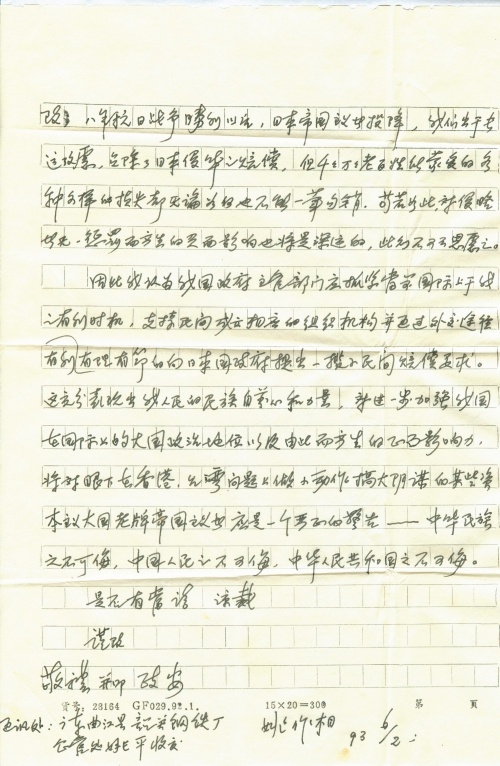 八年抗日战争胜利以后，日本帝国主义投降，我们出于
这政策，免除了日本侵华之赔偿，但千千万万老百姓所蒙受的各
种各样的损失却无论如何也不能一笔勾销，
而产生的负面影响也将是深远的，此所不可不思虑之。
因此我认为我国政府主管部门应抓紧当前国际上于我
之有利时机，支持民间成立相应的组织机构并通过外交途径
有利有理有节的向日本国政府提出一揽子民间赔偿要求。
这充分表现出我人民的民族自尊心和力量，并进一步加强我国
在国际上的大国政治地位以及由此而产生的不可影响力，
将对眼下在香港、台湾问题上做小动作搞大阴谋的某些资
本主义大国老牌帝国主义者应是一个严厉的警告——中华民族
之不可侮，中国人民之不可侮，中华人民共和国之不可侮。
是否有当 请 裁
谨致
敬礼 并颂 政安
货号：28164 GF029.92.1. 15×20=300 第 页
通讯处：广东曲江县韶关钢铁厂
姚作相
93 6/2